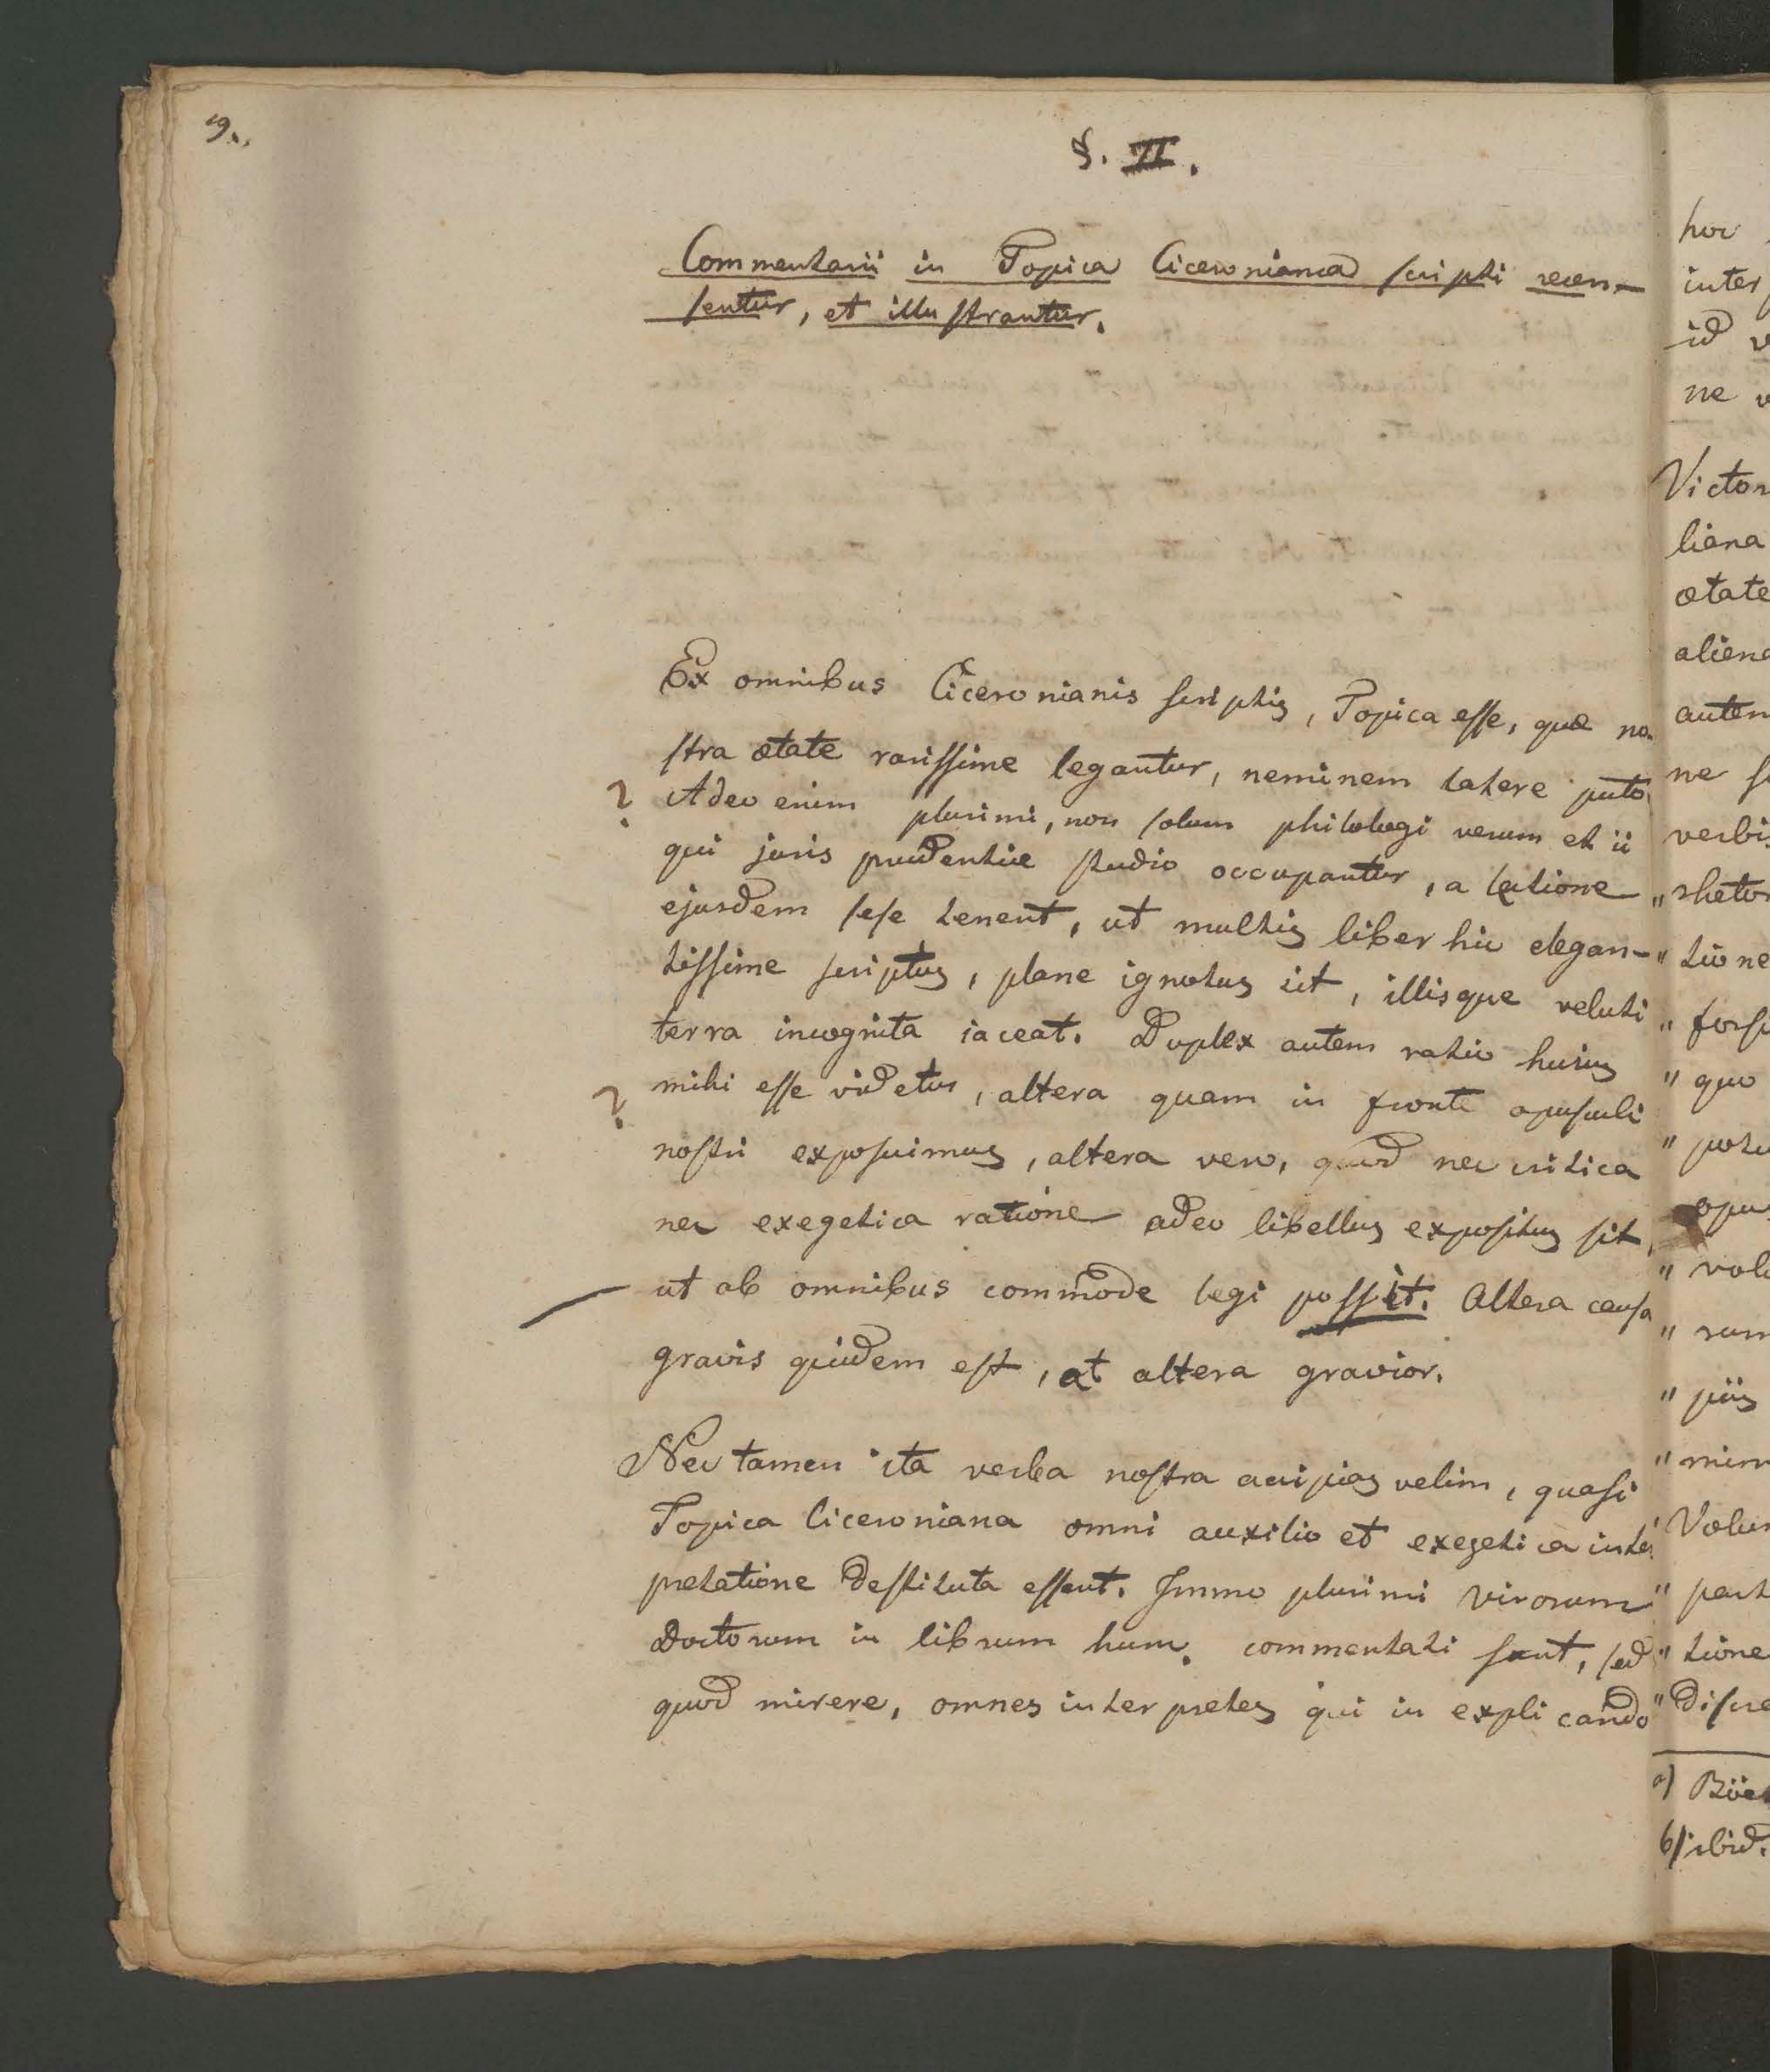 9.
§. II.
Commentarii in Topica Ciceroniana scripti recen-
sentur, et illustrantur.
Ex omnibus Ciceronianis scriptis, Topica esse, quæ no-
stra ætate rarissime legantur, neminem latere puto
? Adeo enim plurimi, non solum philologi verum et ii
qui juris prudentiæ studio occupantur, a lectione
ejusdem sese tenent, ut multis liber hic elegan-
tissime scriptus, plane ignotus sit, illisque veluti
terra incognita iaceat. Duplex autem ratio huius
? mihi esse videtur, altera quam in fronte opusculi
nostri exposuimus, altera vero, quod nec critica
nec exegetica ratione adeo libellus expositus sit,
ut ab omnibus commode legi possit. Altera causa
gravis quidem est, at altera gravior.
Nec tamen ita verba nostra accipias velim, quasi
Topica Ciceroniana omni auxilio et exegetica inter
pretatione destituta essent. Immo plurimi virorum
Doctorum in librum hunc commentati sunt, sed
quod mirere, omnes interpretes qui in explicando
hoc
inter
id v
ne v
Victor
liana
ætate
aliena
autem
ne s
verbis
" rhetor
" tione
" forsi
" quo
" potu
opus
" volu
" rum
" piis
" mim
Volum
" part
" tione
" discre
a) Böet
b) ibid.